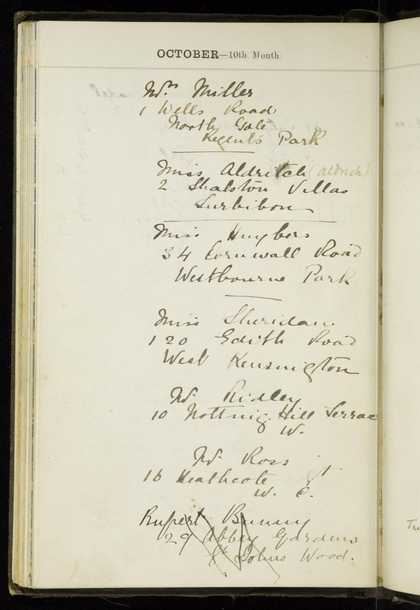 OCTOBER—10th Month
Mrs Miller
1 Wells Road
North Gate
Regent's Park
Miss Aldritch (Aldrich)
2 Shalston Villas
Surbiton
Miss Huybers
34 Cornwall Road
Westbourne Park
Miss Sheridan
120 Edith Road
West Kensington
Ridley
10 Notting Hill Terrace
W.
Ross
16 Heathcote St
W. C.
Rupert Bunny
29 Abbey Gardens
St Johns Wood.